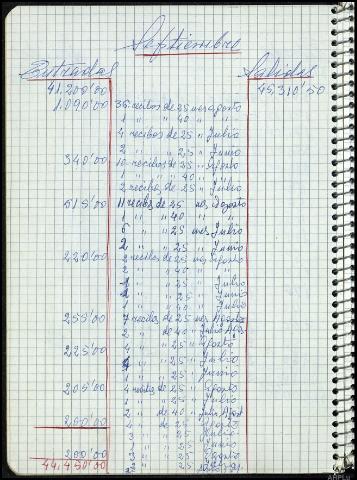 Septiembre
Entradas Salidas
41,200'00 45,310'50
1,090'00 36 recibos de 25 mes agosto
1 " " 40 " "
4 recibos de 25 " Julio
2 " " 25 " Junio
340'00 10 recibos de 25 " Agosto
1 " " 40 " "
2 recibos de 25 " Julio
515'00 11 recibos de 25 mes Agosto
1 " " 40 " "
6 " " 25 mes Julio
2 " " 25 " Junio
220'00 recibos de 25 mes Agosto
2 " " 40 " "
1 " " 25 " Julio
1 " " 25 " Junio
1 " " 25 " Julio
255'00 7 recibos de 25 mes Agosto
2 " de 40 " Julio Agos
225'00 4 " " 25 " Agosto
" " 25 " Julio
1 " " 25 " Junio
205'00 4 recibos de 25 " Agosto
1 " " 25 " Julio
2 " de 40 " Julio Agost
200'00 4 " de 25 " Agosto
3 " " 25 " Julio
1 " " 25 " Junio
200'00 3 " " 25 " Agosto
44,450'00 " " 25